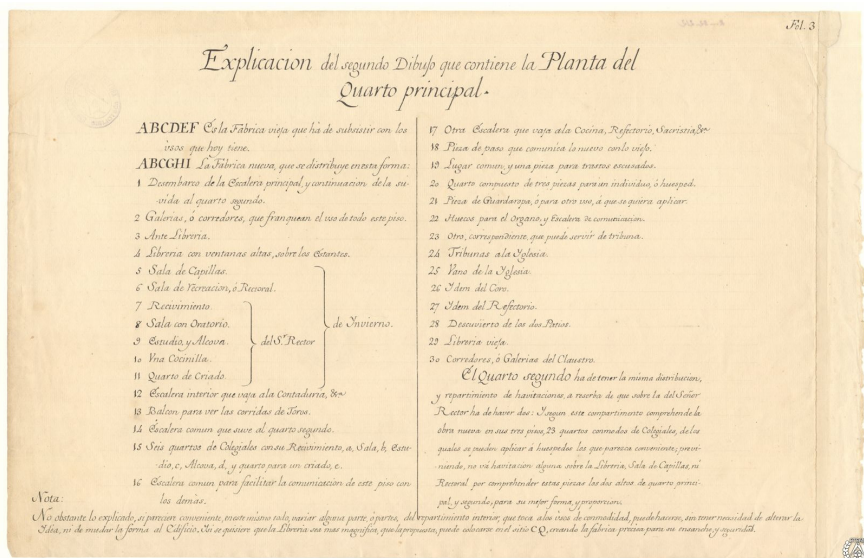 Fol. 3
Explicacion del segundo Dibujo que contiene la Planta del
Quarto principal.
ABCDEF Es la Fabrica vieja que ha de subsistir con los
usos que hoy tiene.
ABCGHI La Fabrica nueva, que se distribuye en esta forma:
1 Desembarco de la Escalera principal, y continuacion de la su-
vida al quarto segundo.
2 Galerias, ó corredores, que franquean el uso de todo este piso.
3 Ante Libreria.
4 Libreria con ventanas altas, sobre los Estantes.
5 Sala de Capillas.
6 Sala de Recreacion, ó Rectoral.
7 Recivimiento.
8 Sala con Oratorio.
9 Estudio, y Alcova.
10 Vna Cocinilla.
11 Quarto de Criado.
del Sr. Rector
de Ynvierno.
12 Escalera interior que vaja ala Contaduria, &c.
13 Balcon para ver las corridas de Toros.
14 Escalera comun que suve al quarto segundo.
15 Seis quartos de Colegiales con su Recivimiento, a, Sala, b, Estu-
dio, c, Alcova, d, y quarto para un criado, e.
16 Escalera comun para facilitar la comunicacion de este piso con
los demàs.
17 Otra Escalera que vaja ala Cocina, Refectorio, Sacristia, &c.
18 Pieza de paso que comunica lo nuevo con lo viejo.
19 Lugar comun, y una pieza para trastos escusados.
20 Quarto compuesto de tres piezas para un individuo, ó huesped.
21 Pieza de Guardaropa, ó para otro uso, á que se quiera aplicar.
22 Huecos para el Organo, y Escalera de comunicacion.
23 Otro, correspondiente, que puede servir de tribuna.
24 Tribunas ala Yglesia.
25 Vano de la Yglesia.
26 Ydem del Coro.
27 Ydem del Refectorio.
28 Descuvierto de los dos Patios.
29 Libreria vieja.
30 Corredores, ó Galerias del Claustro.
El Quarto segundo ha de tener la misma distribucion,
y repartimiento de havitaciones, a reserba de que sobre la del Señor
Rector ha de haver dos: Y segun este compartimento comprehende la
obra nueva en sus tres pisos, 23 quartos comodos de Colegiales, de los
quales se pueden aplicar á huespedes los que parezca conveniente; previ-
niendo, no vá havitacion alguna sobre la Libreria, Sala de Capillas, ni
Rectoral por comprender estas piezas los dos altos de quarto princi-
pal, y segundo, para su mejor forma, y proporcion.
Nota:
No obstante lo explicado, si pareciere conveniente, en este mismo todo, variar alguna parte, ó partes, del repartimiento interior, que toca alos usos de commodidad, puede hacerse, sin tener necesidad de alterar la
Idea, ni de mudar la forma al Edificio. Y si se quisiere que la Libreria sea mas magnifica, que la propuesta, puede colocarse en el sitio CQ, creando la fabrica precisa para su ensanche, y seguridad.